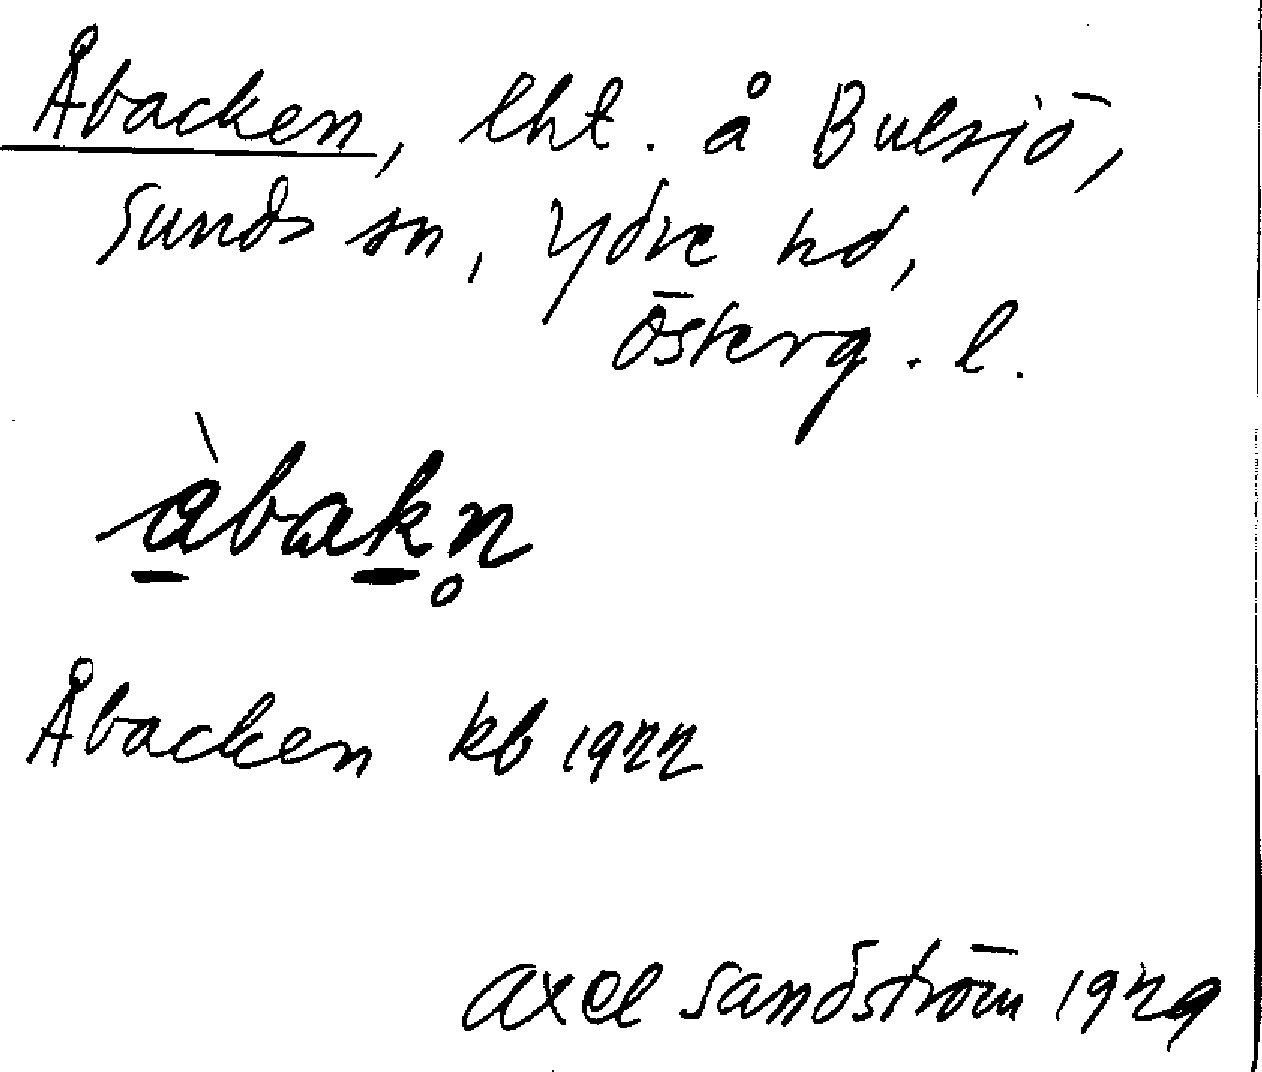 Åbacken, lht. å Bulsjö,
Sunds sn, Ydre hd,
Österg. l.
àbakn̥
Åbacken kb 1922
Axel Sandström 1929